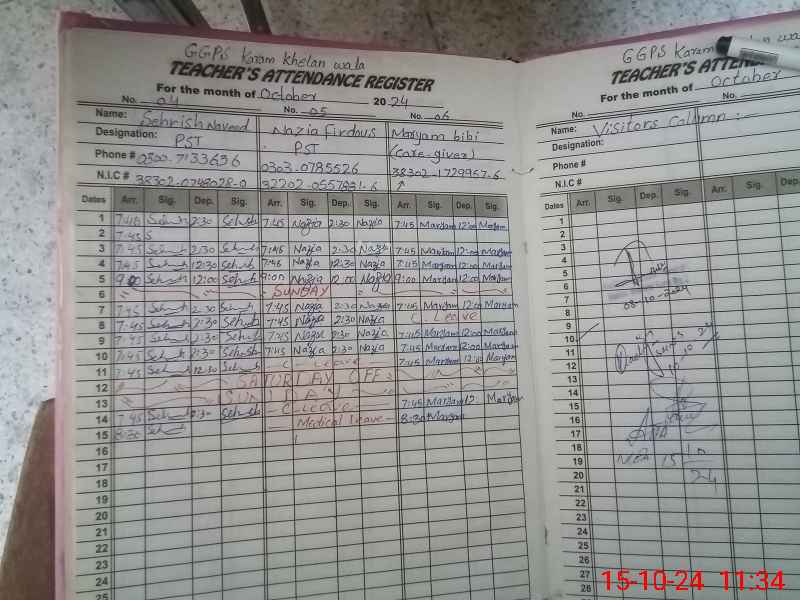 GGPS Karam Khelan wala
TEACHER'S ATTENDANCE REGISTER
For the month of October 2024
No. 04 No. 05 No. 06
Name: Sehrish Naveed Nazia Firdous Maryam bibi
Designation: PST PST (Care-giver)
Phone # 0300-7133636 0303-0785526
N.I.C # 38302-0748028-0 32202-0557881-6 38302-1729967-6
Dates Arr. Sig. Dep. Sig. Arr. Sig. Dep. Sig. Arr. Sig. Dep. Sig.
1 7:45 2:30 7:45 Nazia 2:30 Nazia 7:45 Maryam 12:00 Maryam
2 7:45 S
3 7:45 2:30 7:45 Nazia 2:30 Nazia 7:45 Maryam 12:00 Maryam
4 7:45 12:30 7:45 Nazia 12:30 Nazia 7:45 Maryam 12:00 Maryam
5 9:00 12:00 9:00 Nazia 12:00 Nazia 9:00 Maryam 12:00 Maryam
6 SUNDAY
7 7:45 2:30 7:45 Nazia 2:30 Nazia 7:45 Maryam 12:00 Maryam
8 7:45 2:30 7:45 Nazia 2:30 Nazia C Leave
9 7:45 2:30 7:45 Nazia 2:30 Nazia 7:45 Maryam 12:00 Maryam
10 7:45 2:30 7:45 Nazia 2:30 Nazia 7:45 Maryam 12:00 Maryam
11 7:45 12:30 C - Leave 7:45 Maryam 12:00 Maryam
12 SATURDAY OFF
13 SUNDAY
14 7:45 2:30 C-Leave 7:45 Maryam 12: Maryam
15 8:30 Medical Leave 8:30 Maryam
16
17
18
19
20
21
22
23
24
25
GGPS Karam Khelan wala
TEACHER'S ATTEN
For the month of October
No. No.
Name: Visitors Column:-
Designation:
Phone #
N.I.C #
Dates Arr. Sig. Dep. Sig. Arr. Sig. Dep.
1
2
3
4
5
6
7
08-10-2024
8
9
10
11
12
10 10 24
13
14
15
16
17
18
19
MEA 15 10 24
20
21
22
23
24
25
26
27
28
15-10-24 11:34